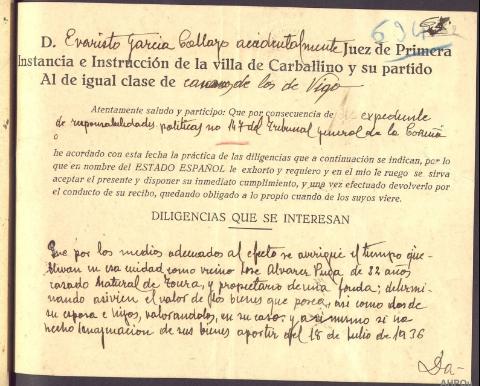 694
D. Evaristo Garcia Collazo accidentalmente Juez de Primera
Instancia e Instrucción de la villa de Carballino y su partido
Al de igual clase de de los de Vigo
Atentamente saludo y participo: Que por consecuencia de expediente
de responsabilidades politicas no 147 del Tribunal general de la Coruña
he acordado con esta fecha la práctica de las diligencias que a continuación se indican, por lo
que en nombre del ESTADO ESPAÑOL le exhorto y requiero y en el mio le ruego se sirva
aceptar el presente y disponer su inmediato cumplimiento, y una vez efectuado devolverlo por
el conducto de su recibo, quedando obligado a lo propio cuando de los suyos viere.
DILIGENCIAS QUE SE INTERESAN
Que por los medios adecuados al efecto se averigue el tiempo que
llevan en esa ciudad como vecino Jose Alvarez Puga de 32 años
casado natural de y propietario de una fonda; determi-
nando asi el valor de los bienes que posea, asi como los de
su esposa e hijos, valorandolos, en su caso; y asi mismo si ha
hecho enagenación de sus bienes a partir del 18 de Julio de 1936
Da-